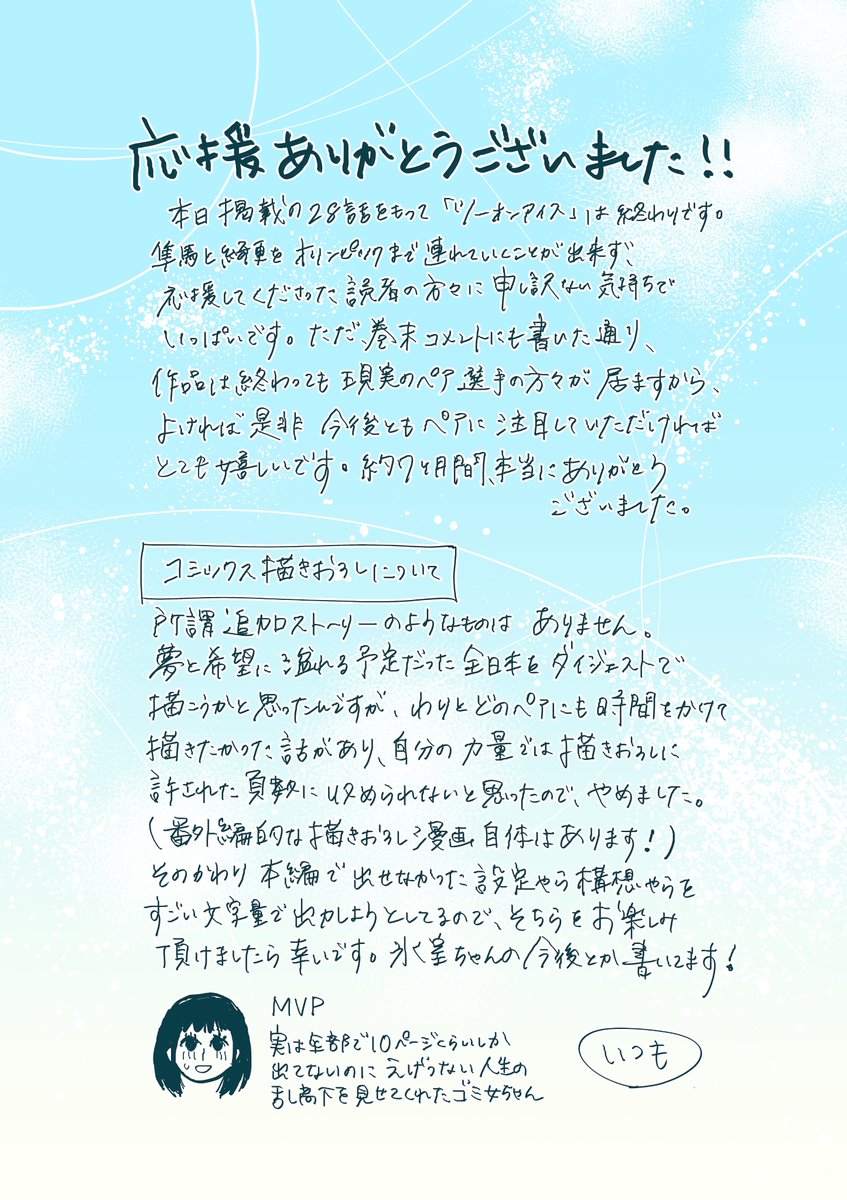 応援ありがとうございました!!
本日掲載の28話をもって「ツーオンアイス」は終わりです。
隼馬と綺更をオリンピックまで連れていくことが出来ず、
応援してくださった読者の方々に申し訳ない気持ちで
いっぱいです。ただ、巻末コメントにも書いた通り、
作品は終わっても現実のペア選手の方々が居ますから、
よければ是非今後ともペアに注目していただければ
とても嬉しいです。約7ヶ月間、本当にありがとう
ございました。
コミックス描きおろしについて
所謂追加ストーリーのようなものはありません。
夢と希望に溢れる予定だった全日本をダイジェストで
描こうかと思ったんですが、わりとどのペアにも時間をかけて
描きたかった話があり、自分の力量では描きおろしに
許された頁数に収められないと思ったので、やめました。
(番外編的な描きおろし漫画自体はあります!)
そのかわり本編で出せなかった設定やら構想やらを
すごい文字量で出力しようとしてるので、そちらをお楽しみ
頂けましたら幸いです。氷室ちゃんの今後とか書いてます!
MVP
実は全部で10ページくらいしか
出てないのにえげつない人生の
乱高下を見せてくれたゴミ女ちゃん
いつも